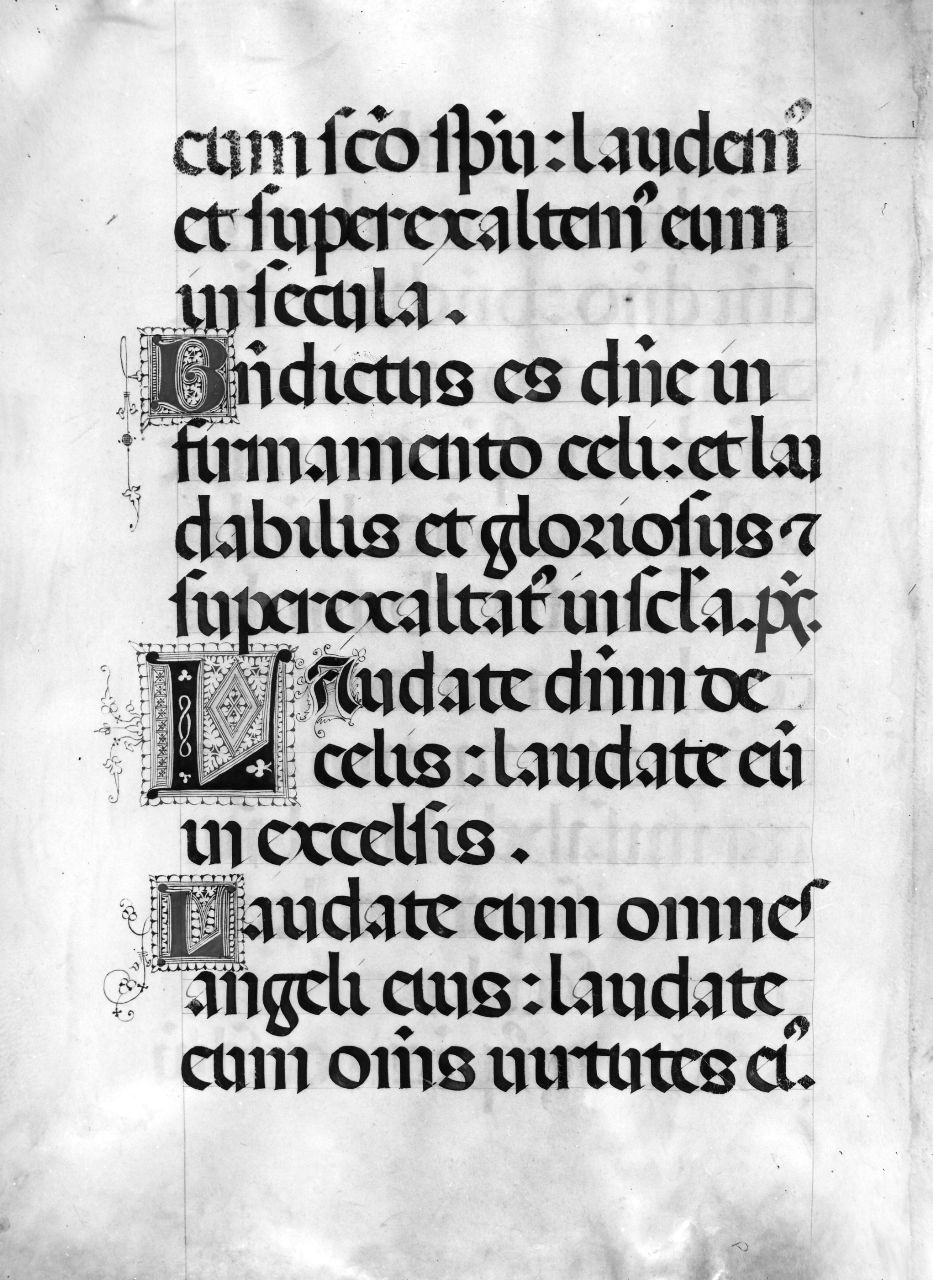 cum sc̃o sp̃u : laudem᾿
et superexaltem᾿ eum
in secula .
Bn̄dictus es dn̄e in
firmamento celi : et lau
dabilis et gloriosus ⁊
superexaltat᾿ in scl̄a . ps̄ .
LAudate dn̄m de
celis : laudate eū
in excelsis .
Laudate eum omnes
angeli eius : laudate
eum om̄s uirtutes ei᾿ .